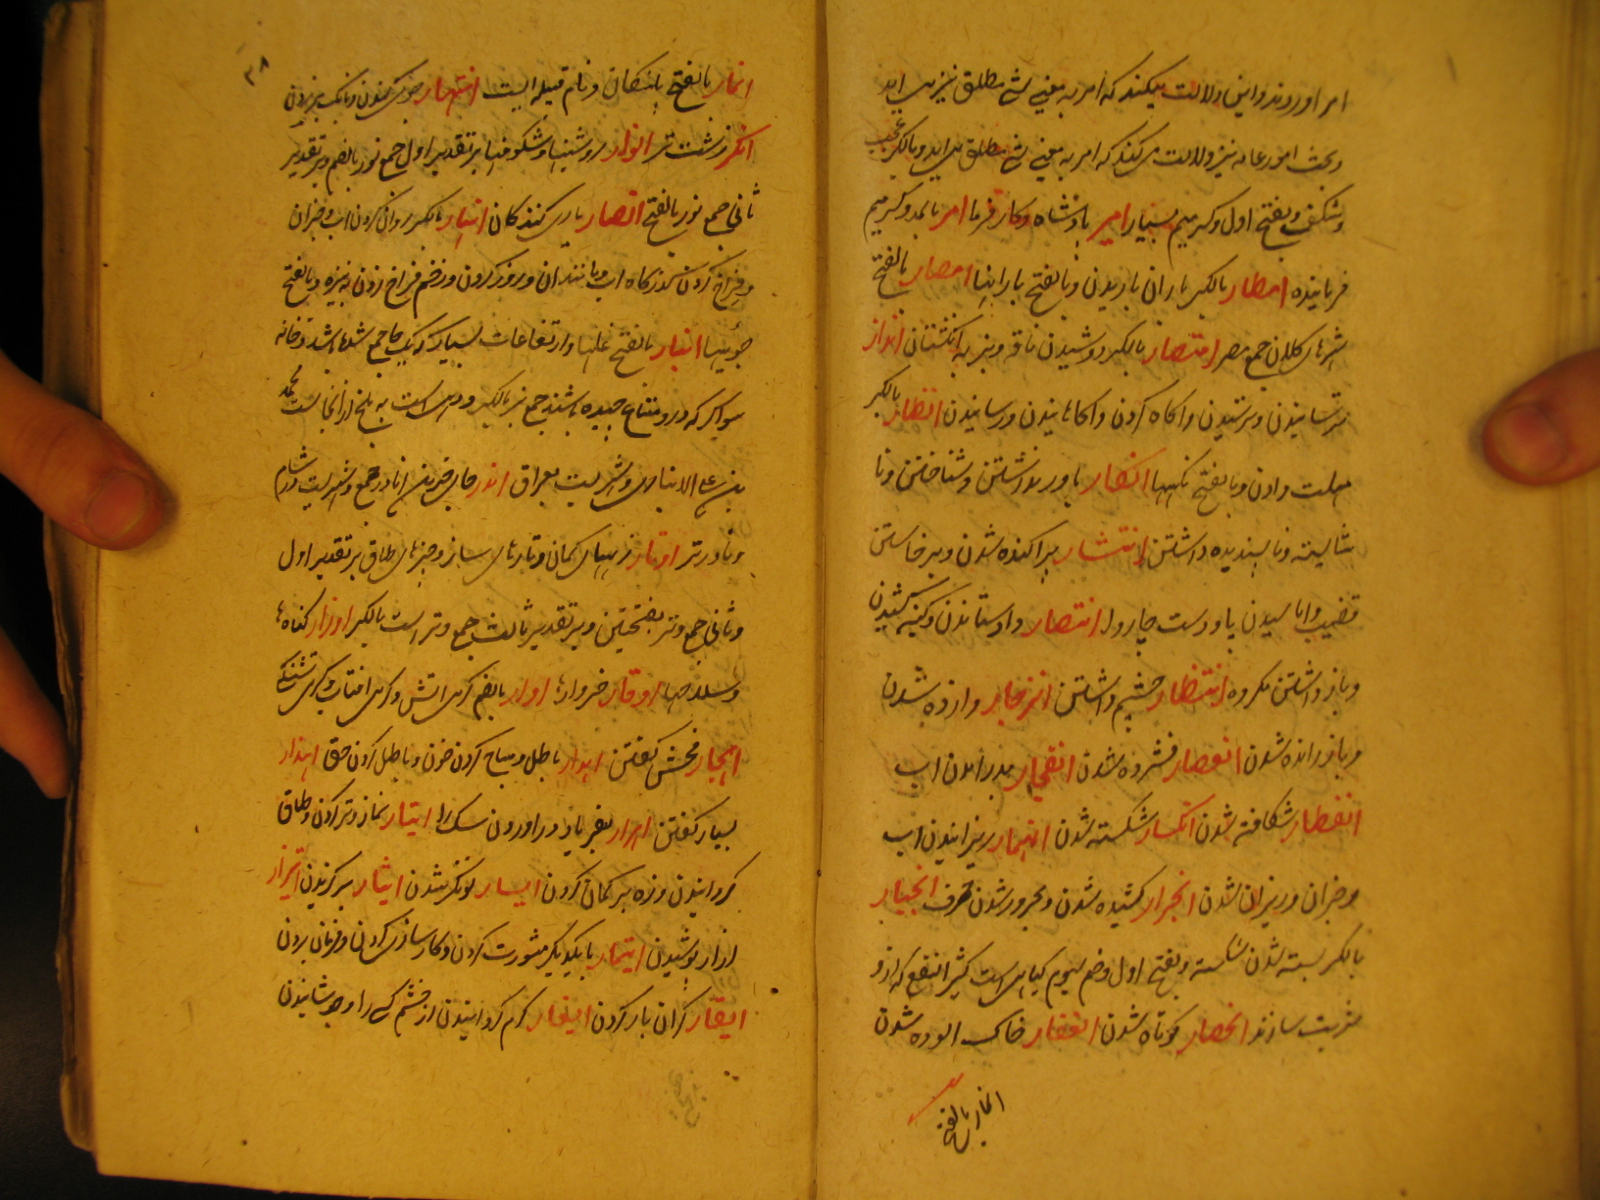 امر اوروند و این دلالت میکند که امر به معنی شی مطلق نیز می اید
و بحث امور عامه نیز دلالت می کند که امر به معنی شی مطلق می اید و بالکسر عجب
و شکفت و بفتح اول و کسر میم بسیار امیر بادشاه و کار فرما امر بالمد و کسر میم
فرماینده امطار بالکسر باران باریدن و بالفتح بارانها امصار بالفتح
شهرهای کلان جمع مصر امتصار بالکسر دوشیدن ناقه و بز به انگشتان انذار
ترسانیدن و ترسیدن و اکاه کردن و اکاهانیدن و رسانیدن انظار بالکسر
مهلت دادن و بالفتح نکهها انکار باور نداشتن و نشناختن و نا
شایسته و ناپسندیده داشتن انتشار پراکنده شدن و برخاستن
قضیب و اماسیدن پا و دست چاروا انتصار داد ستاندن و کینه کشیدن
و باز داشتن مکروه انتظار چشم داشتن انزجار وا زده شدن
و باز رانده شدن انعصار فشرده شدن انفجار بدر امدن اب
انفطار شکافته شدن انکسار شکسته شدن انهمار ریزانیدن اب
و جز ان و ریزان شدن انجرار کشیده شدن و مجرور شدن حرف انجبار
بالکسر بسته شدن شکسته و بفتح اول و ضم سیوم کیاهی است کثیر النفع که ازو
شربت سازند انحصار کوتاه شدن انعفار خاک الوده شدن
انمار بالفتح
۳۸
انمار بالفتح پلنکان و نام قبیله ایست انتهار جوی کندن و بانک بر زدن
انکر زشت تر انوار روشنیها و شکوفها بر تقدیر اول جمع نور بالضم و بر تقدیر
ثانی جمع نور بالفتح انصار یاری کنندکان انهار بالکسر روان کردن اب و جز ان
و فراخ کردن کذرکاه اب و مانند ان و روز کردن و زخم فراخ زدن به نیزه و بالفتح
جوئیها انبار بالفتح غلها و ارتفاعات بسیار که در یک جا جمع شده باشد و خانه
سوداکر که درو متاع چیده باشند جمع نبر بالکسر و دهی است به بلخ از انجاست محمد
بن علی الانباری و شهریست بعراق اندر جای خرمن انادر جمع و شهریست در شام
و نادرتر اوتار زههای کمان و تارهای ساز و چیزهای طاق بر تقدیر اول
و ثانی جمع وتر بفتحتین و بر تقدیر ثالث جمع وتر است بالکسر اوزار کناه ها
و سلاحها اوقار خروارها اوار بالضم کرمی اتش و کرمی افتاب و کرمی تشنکی
اهجار فحش کفتن اهدار باطل و مباح کردن خون و باطل کردن حق اهذار
بسیار کفتن اهرار بفریاد در اوردن سک را ایتار نماز وتر کردن و طاق
کردانیدن و زه بر کمان کردن ایسار تونکر شدن ایثار بر کزیدن ایتزار
ازار پوشیدن ایتمار با یکدیکر مشورت کردن و کار سازی کردن و فرمان بردن
ایقار کران بار کردن ایغار کرم کردانیدن از خشم کسی را و جوشانیدن